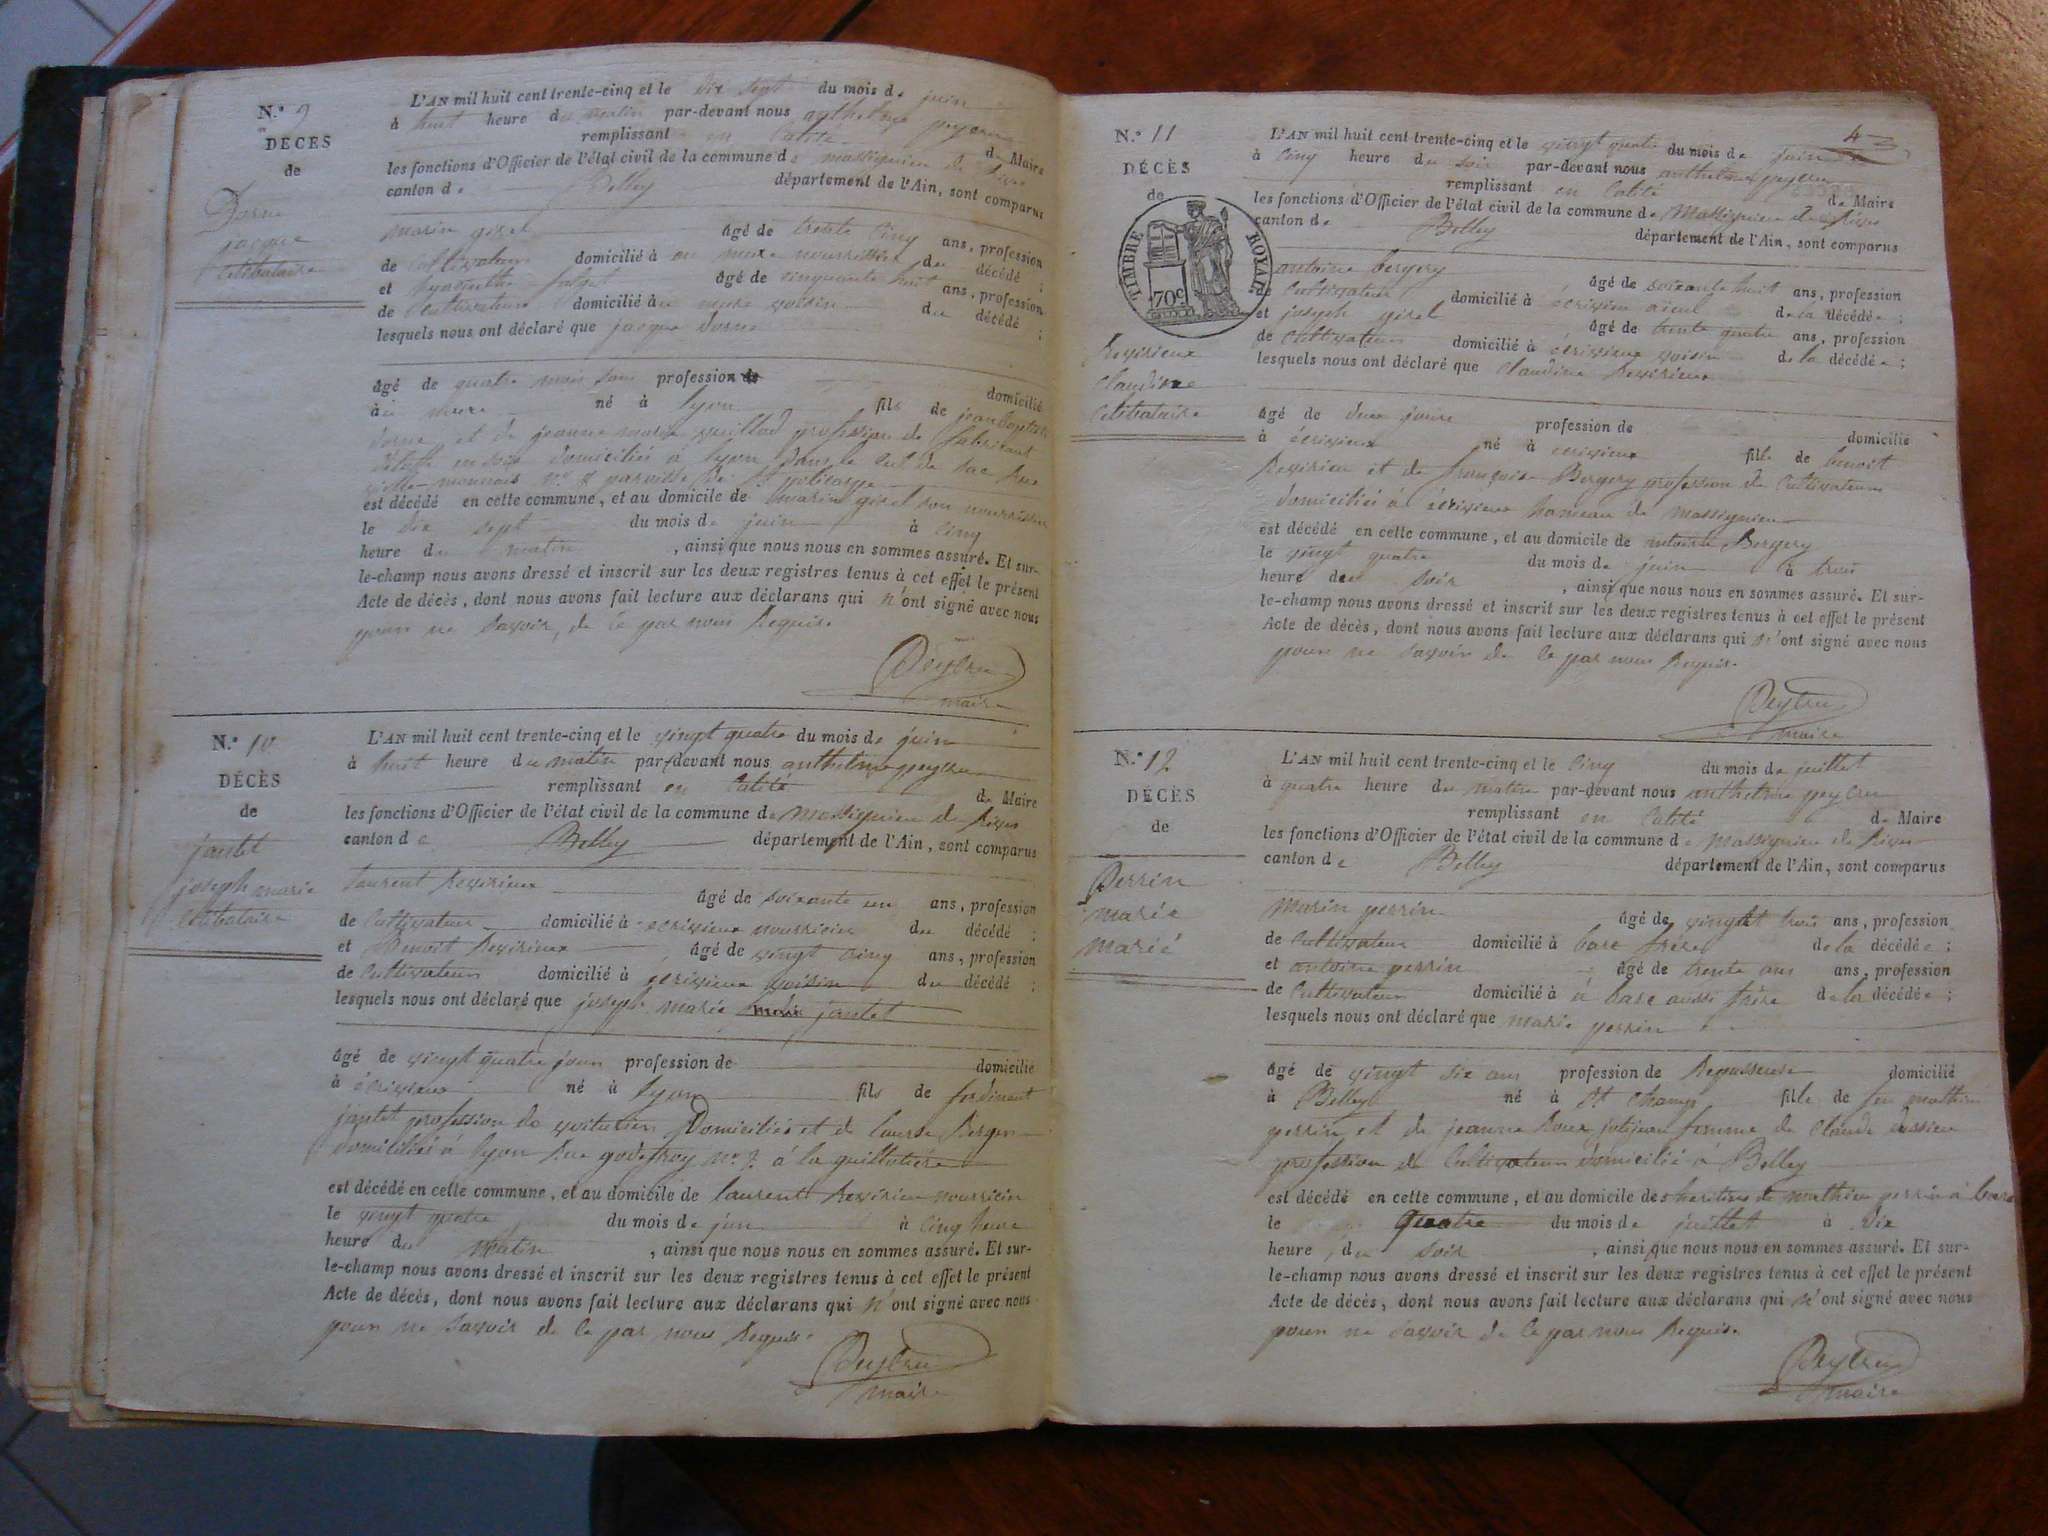 N.º 9
DÉCÈS
de
Dorne
jacque
célibataire
L'AN mil huit cent trente-cinq et le dix sept du mois de juin
à huit heure du matin par-devant nous anthelme peyzeu
remplissant en Calité de Maire
les fonctions d'Officier de l'état civil de la commune de massignieu de Rives
canton de Belley département de l'Ain, sont comparus
marin girel âgé de trente Cinq ans, profession
de Cultivateur domicilié à au mure nourricier du décédé ;
et hyacinthe âgé de cinquante huit ans, profession
de Cultivateur domicilié à au mure voisin du décédé ;
lesquels nous ont déclaré que jacque dorne
âgé de quatre mois sans profession de domicilié
à au mure né à lyon fils de jean baptiste
dorne et de jeanne marie profession de fabricant
d'étoffe en soie domiciliés à lyon dans le Cul de Sac Rue
vielle monnaie n.º paroisse de St policarpe
est décédé en cette commune, et au domicile de marin girel son nourricier
le dix sept du mois de juin à Cinq
heure du matin, ainsi que nous nous en sommes assuré. Et sur-
le-champ nous avons dressé et inscrit sur les deux registres tenus à cet effet le présent
Acte de décès, dont nous avons fait lecture aux déclarans qui n'ont signé avec nous
pour ne Savoir, de Ce par nous Requis.
maire
N.º 10
DÉCÈS
de
jantet
joseph marie
célibataire
L'AN mil huit cent trente-cinq et le vingt quatre du mois de juin
à huit heure du matin par-devant nous anthelme peyzeu
remplissant en Calité de Maire
les fonctions d'Officier de l'état civil de la commune de Massignieu de Rives
canton de Belley département de l'Ain, sont comparus
Laurent Revirieux âgé de soixante un ans, profession
de Cultivateur domicilié à écrivieux nourricier du décédé ;
et Benoit Revirieux âgé de vingt cinq ans, profession
de Cultivateur domicilié à écrivieux voisin du décédé ;
lesquels nous ont déclaré que joseph marie jantet
âgé de vingt quatre jours profession de domicilié
à écrivieux né à lyon fils de ferdinant
jantet profession de voiturier Domiciliés et de Laurse Berger
domiciliés à lyon Rue godefroy n.º 7 à la guillotière
est décédé en cette commune, et au domicile de laurent Revirieu nourricier
le vingt quatre du mois de juin à Cinq heure
heure du matin, ainsi que nous nous en sommes assuré. Et sur-
le-champ nous avons dressé et inscrit sur les deux registres tenus à cet effet le présent
Acte de décès, dont nous avons fait lecture aux déclarans qui n'ont signé avec nous
pour ne Savoir de Ce par nous Requis.
maire
4
N.º 11
DÉCÈS
de
TIMBRE ROYAL
70c
Revirieux
Claudine
Célibataire
L'AN mil huit cent trente-cinq et le vingt quatre du mois de juin
à Cinq heure du soir par-devant nous anthelme peyzeu
remplissant en Calité de Maire
les fonctions d'Officier de l'état civil de la commune de Massignieu de Rives
canton de Belley département de l'Ain, sont comparus
antoine bergery âgé de soixante huit ans, profession
de Cultivateur domicilié à écrivieu aieul de la décédée ;
et joseph girel âgé de trente quatre ans, profession
de Cultivateur domicilié à écrivieux voisin de la décédée ;
lesquels nous ont déclaré que Claudine Revirieux
âgé de deux jours profession de domicilié
à écrivieux né à écrivieux fille de benoit
Revirieu et de françoise Bergery profession de Cultivateurs
domiciliés à écrivieux hameau de massignieu
est décédé en cette commune, et au domicile de antoine Bergery
le vingt quatre du mois de juin à trois
heure du soir, ainsi que nous nous en sommes assuré. Et sur-
le-champ nous avons dressé et inscrit sur les deux registres tenus à cet effet le présent
Acte de décès, dont nous avons fait lecture aux déclarans qui n'ont signé avec nous
pour ne Savoir de Ce par nous Requis.
maire
N.º 12
DÉCÈS
de
Perrin
marie
marié
L'AN mil huit cent trente-cinq et le Cinq du mois de juillet
à quatre heure du matin par-devant nous anthelme peyzeu
remplissant en Calité de Maire
les fonctions d'Officier de l'état civil de la commune de massignieu de Rives
canton de Belley département de l'Ain, sont comparus
Marin perrin âgé de vingt trois ans, profession
de Cultivateur domicilié à bare frère de la décédée ;
et antoine perrin âgé de trente ans ans, profession
de Cultivateur domicilié à à bare aussi frère de la décédée ;
lesquels nous ont déclaré que marie perrin
âgé de vingt six ans profession de Repasseuse domicilié
à Belley né à St Champ fille de feu mathieu
perrin et de jeanne Roux femme de Claude
profession de Cultivateur domicilié à Belley
est décédé en cette commune, et au domicile des héritiers de mathieu perrin à bare
le Quatre du mois de juillet à dix
heure du soir, ainsi que nous nous en sommes assuré. Et sur-
le-champ nous avons dressé et inscrit sur les deux registres tenus à cet effet le présent
Acte de décès, dont nous avons fait lecture aux déclarans qui n'ont signé avec nous
pour ne Savoir de Ce par nous Requis.
maire